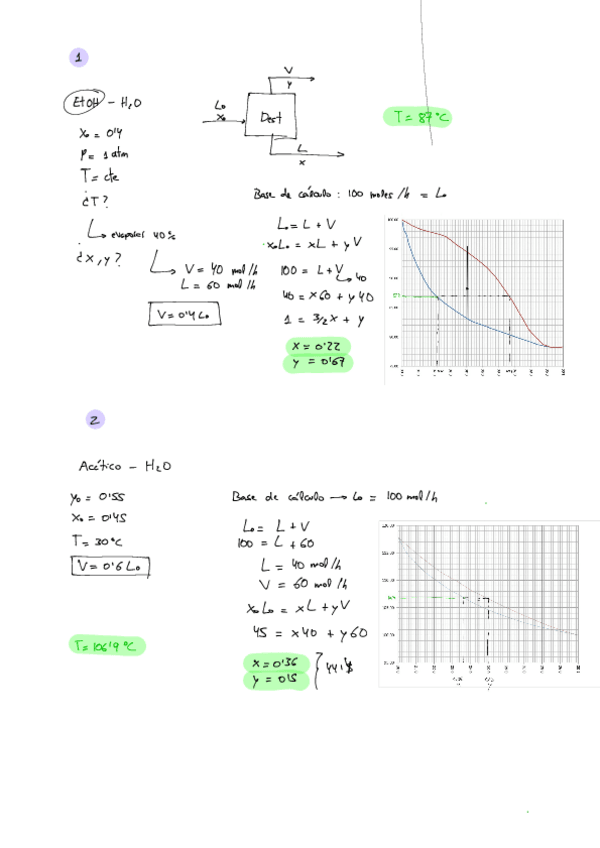 1
EtOH - H2O
x0 = 0'4
P = 1 atm
T = cte
¿T?
evapores 40%
¿x, y?
V = 40 mol/h
L = 60 mol/h
V = 0'4 L0
V
y
L0
x0
Dest
L
x
T = 87°C
Base de cálculo: 100 moles/h = L0
L0 = L + V
x0L0 = xL + yV
100 = L + V
40
40 = x60 + y40
1 = 3/2x + y
x = 0'22
y = 0'67
2
Acético - H2O
y0 = 0'55
x0 = 0'45
T = 30°C
V = 0'6 L0
T = 106'9°C
Base de cálculo → L0 = 100 mol/h
L0 = L + V
100 = L + 60
L = 40 mol/h
V = 60 mol/h
x0L0 = xL + yV
45 = x40 + y60
x = 0'36
y = 0'5